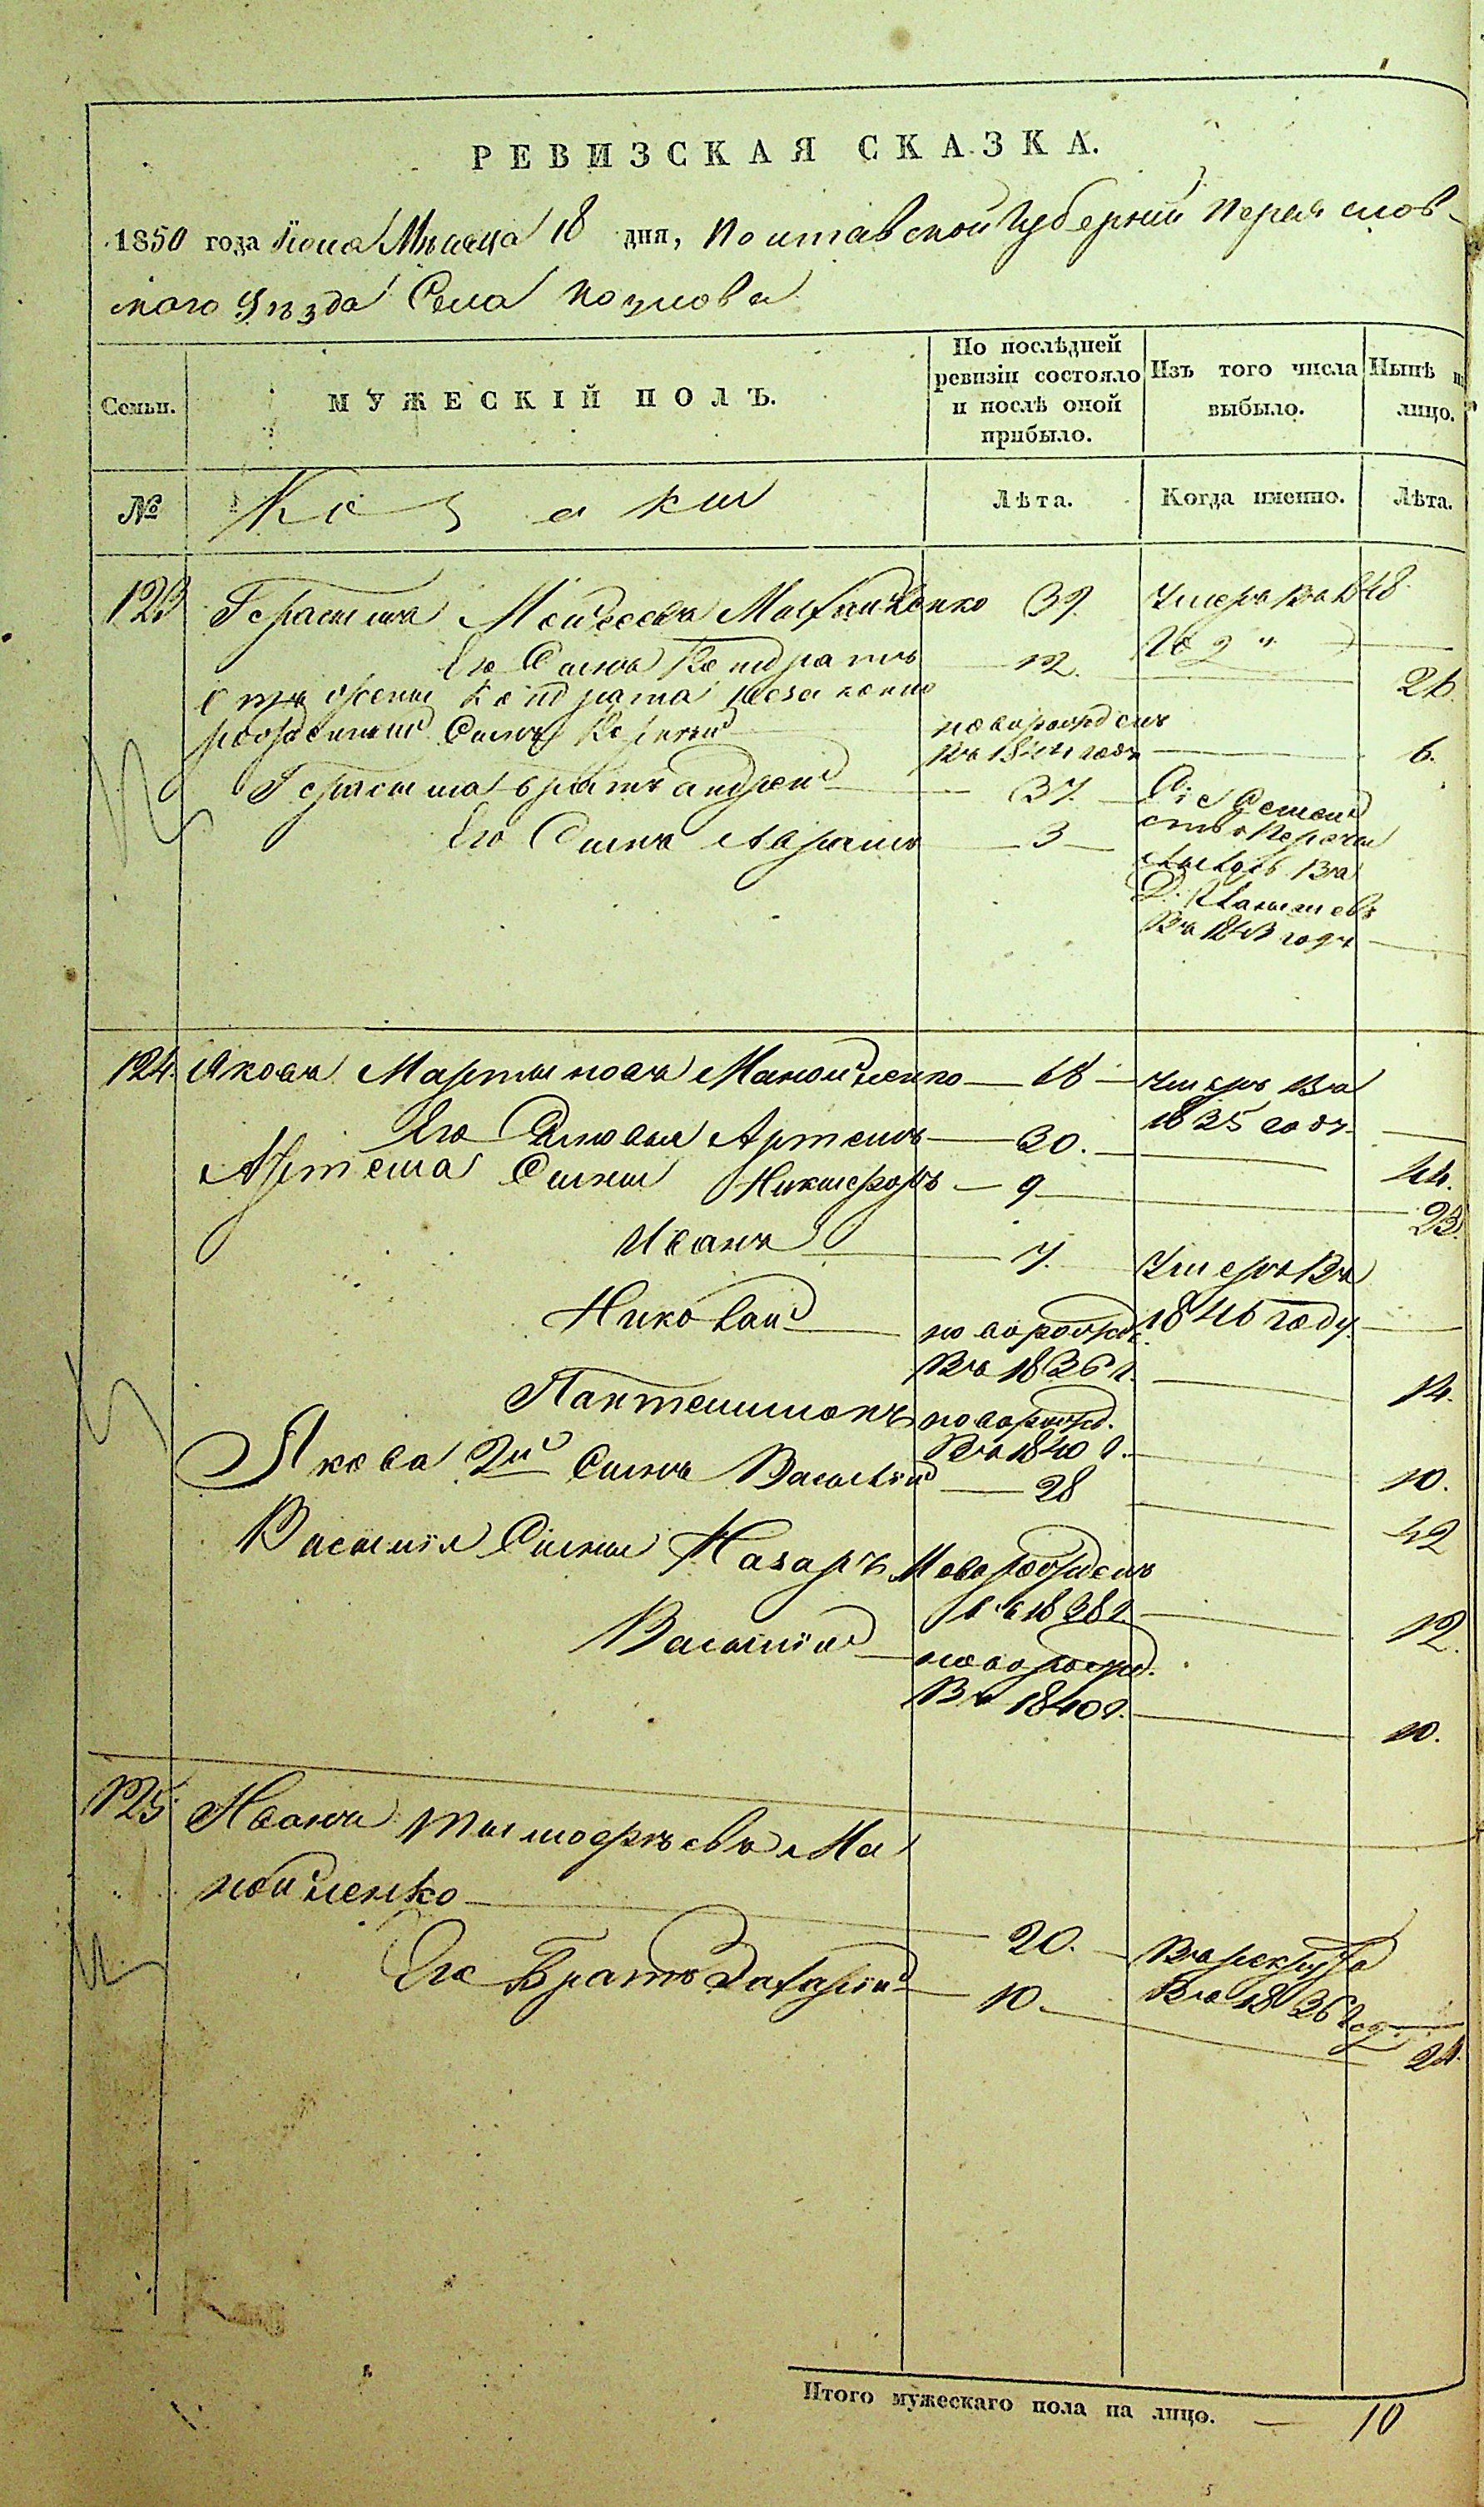 РЕВИЗСКАЯ СКАЗКА.
1850 года Іюня Мѣсяца 18 дня, Полтавской Губерніи Переяслов-
скаго Уѣзда Села Козлова
Семьи.
МУЖЕСКІЙ ПОЛЪ.
По послѣдней
ревизіи состояло
и послѣ оной
прибыло.
Изъ того числа
выбыло.
Нынѣ н
лицо.
№
Козаки
Лѣта.
Когда именно.
Лѣта.
123 Герасимъ Моисеевъ 39. Умеръ въ 1848
Его Сынъ Кондратъ 12. 26
отъ жены Кондрата незаконно
рожденный Сынъ новорожденъ
въ 1844 годѣ 6.
Герасима братъ Андрей 37. Сіе Семей
ство Перечи
Его Сынъ Абрамъ 3 слилось въ
въ 1843 годѣ
124. Яковъ Мартыновъ Манойленко 68 умеръ въ
1835 годѣ
Его Сыновья Артемъ 30. 44.
Артема Сыны Никифоръ 9 23.
Иванъ 7. Умеръ въ
1846 году
Николай новорожд.
въ 1836 г. 14.
Пантелимонъ новорожд.
въ 1840 г. 10.
Якова 2й Сынъ Василій 28 42
Василія Сыны Назаръ Новорожденъ
въ 1838 г. 12.
Василій новорожд.
въ 1840 г. 10.
125 Иванъ Тимофѣевъ Ма
нойленко 20. Въ рекруты
въ 1836 год
Его Братъ Захарій 10. 24.
Итого мужескаго пола на лицо. 10